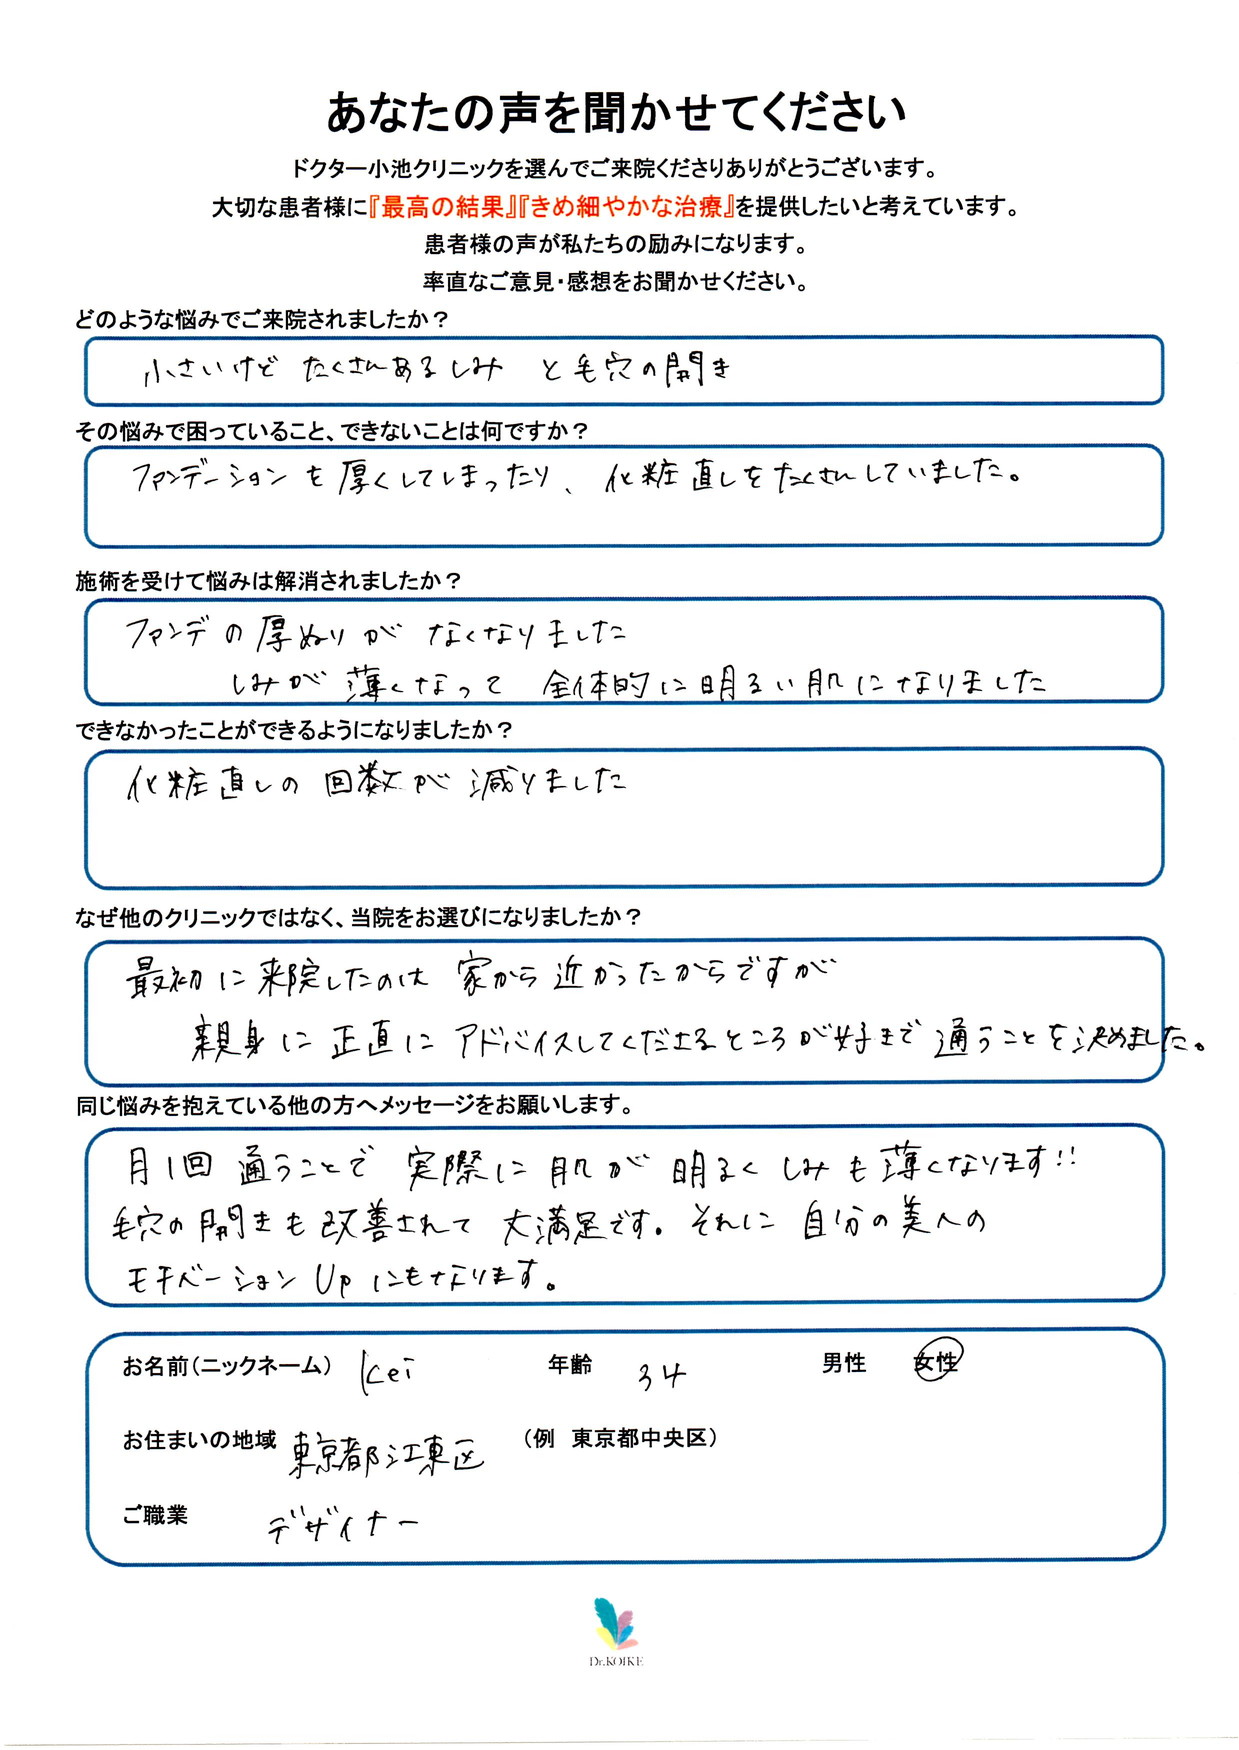 あなたの声を聞かせてください
ドクター小池クリニックを選んでご来院くださりありがとうございます。
大切な患者様に『最高の結果』『きめ細やかな治療』を提供したいと考えています。
患者様の声が私たちの励みになります。
率直なご意見・感想をお聞かせください。
どのような悩みでご来院されましたか？
小さいけど たくさんあるしみ と毛穴の開き
その悩みで困っていること、できないことは何ですか？
ファンデーションを厚くしてしまったり、化粧直しをたくさんしていました。
施術を受けて悩みは解消されましたか？
ファンデの厚ぬりが なくなりました
しみが薄くなって 全体的に明るい肌になりました
できなかったことができるようになりましたか？
化粧直しの回数が減りました
なぜ他のクリニックではなく、当院をお選びになりましたか？
最初に来院したのは家から近かったからですが
親身に正直にアドバイスしてくださるところが好きで通うことを決めました。
同じ悩みを抱えている他の方へメッセージをお願いします。
月1回通うことで実際に肌が明るくしみも薄くなります!!
毛穴の開きも改善されて大満足です。それに自分の美への
モチベーションUpにもなります。
お名前(ニックネーム) Kei 年齢 34 男性 女性
お住まいの地域 東京都江東区 (例 東京都中央区)
ご職業 デザイナー
Dr.KOIKE